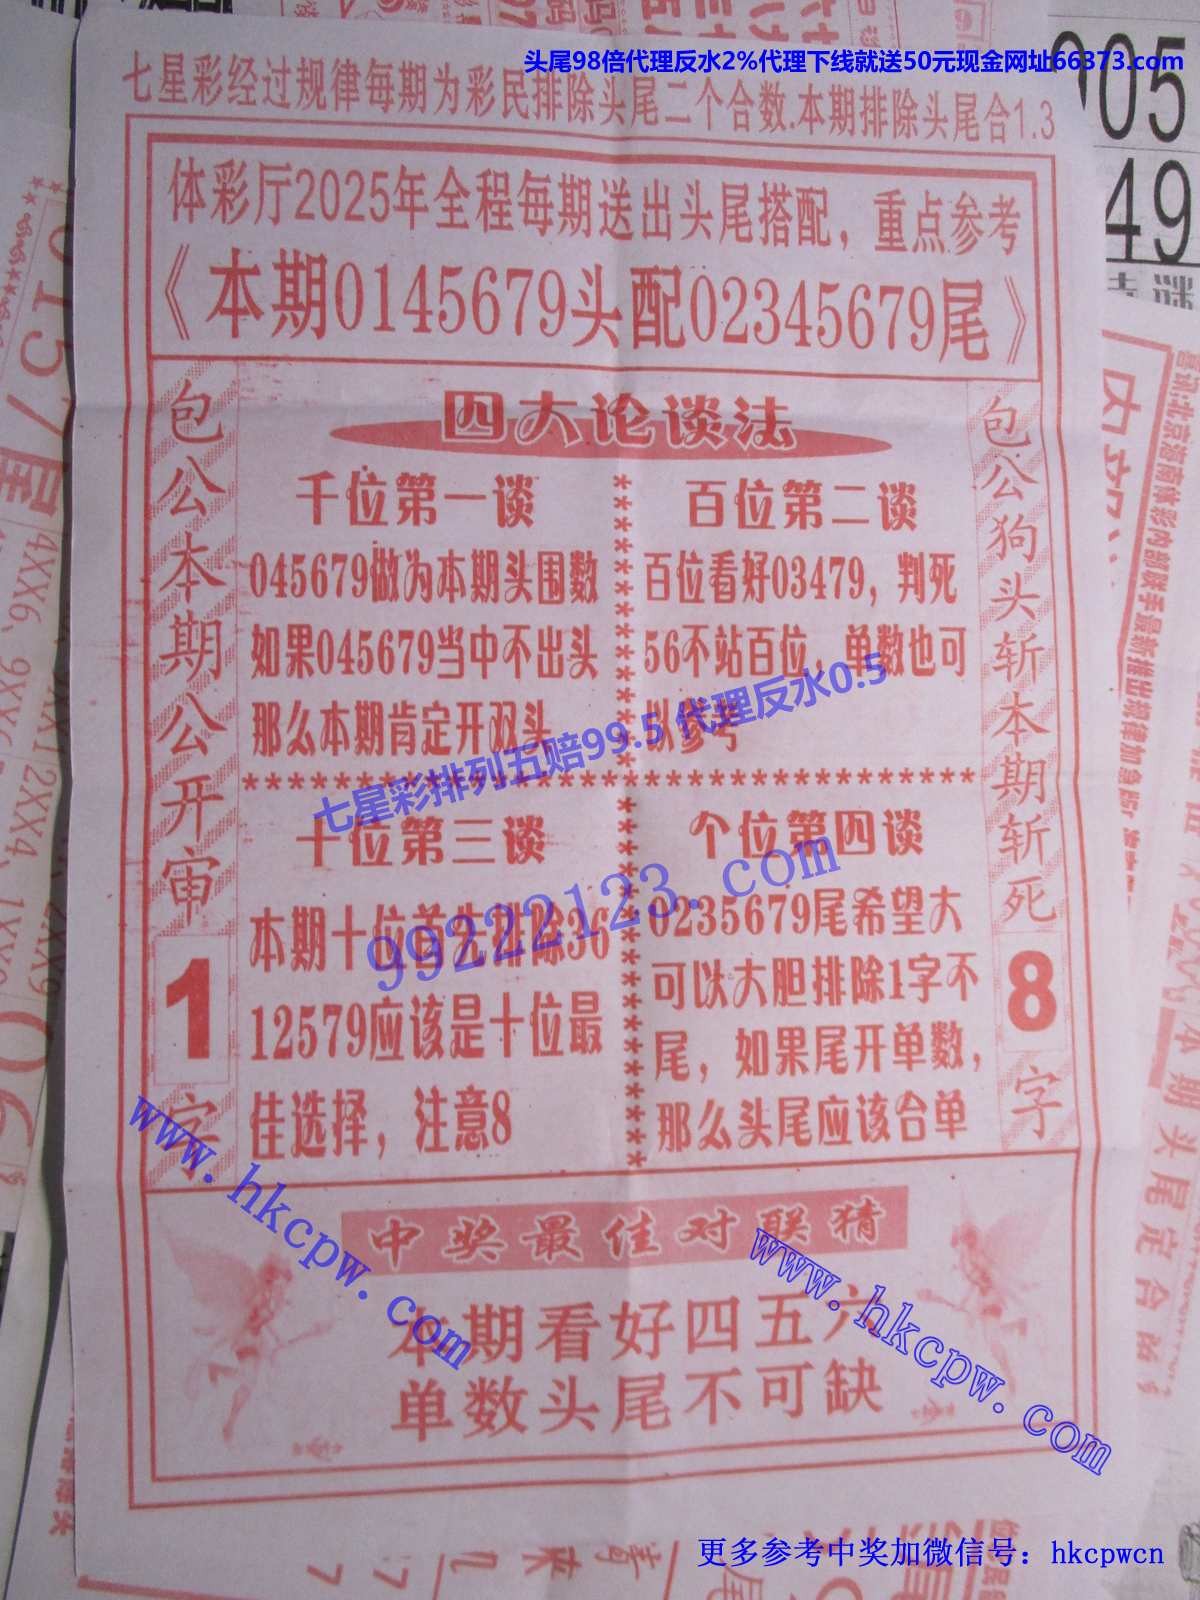 头尾98倍代理反水2%代理下线就送50元现金网址66373.com
七星彩经过规律每期为彩民排除头尾二个合数.本期排除头尾合1.3
体彩厅2025年全程每期送出头尾搭配，重点参考
《本期0145679头配02345679尾》
四大论谈法
包公本期公开审1字
千位第一谈
045679做为本期头围数
如果045679当中不出头
那么本期肯定开双头
百位第二谈
百位看好03479，判死
56不站百位，单数也可
以参考
七星彩排列五赔99.5 代理反水0.5
99222123.com
十位第三谈
本期十位首先排除36
12579应该是十位最
佳选择，注意8
个位第四谈
0235679尾希望大
可以大胆排除1字不
尾，如果尾开单数，
那么头尾应该合单
包公狗头斩本期斩死8字
中奖最佳对联猜
本期看好四五六
单数头尾不可缺
www.hkcpw.com
www.hkcpw.com
更多参考中奖加微信号：hkcpwcn
005
49